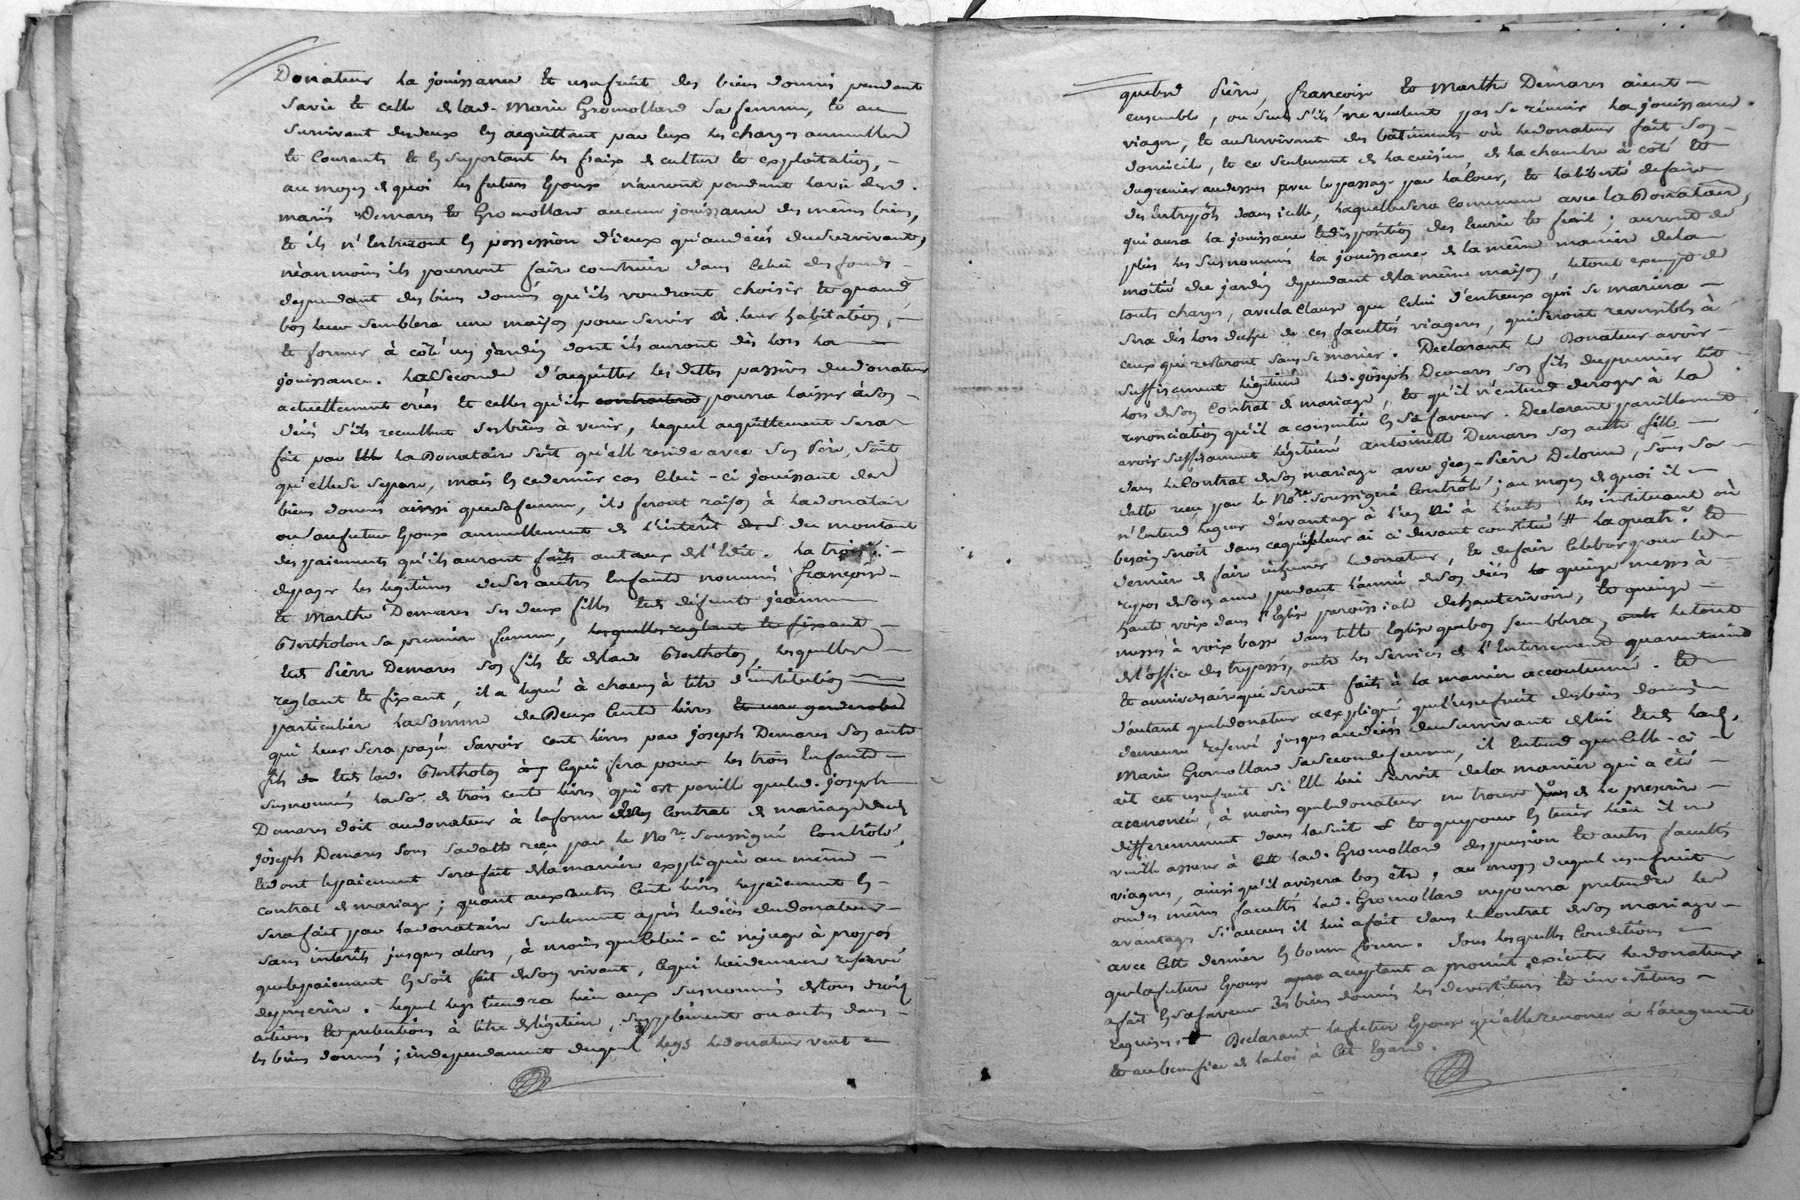 Donateur la jouissance et usufruit des biens donnés pendant
sa vie et celle de lad. Marie Gromollard sa femme, et au
survivant des deux en acquittant par eux les charges annuelles
et courants et en suportant les fraix de culture et exploitation,
au moyen de quoi les futurs Epoux n'auront pendant la vie desd.
mariés Demares et Gromollard aucune jouissance des mêmes biens,
et ils n'entreront en possession d'iceux qu'au décès du survivant,
néanmoins ils pourront faire construire dans celui des fonds
dependant des biens donnés qu'ils voudront choisir et quand
bon leur semblera une maison pour servir à leur habitation,
et former à côté un jardin dont ils auront dès lors la
jouissance. La Seconde d'acquitter les dettes passives du donateur
actuellement crées et celles qu'il contractera pourra laisser à son
décès s'ils recueillent ses biens à venir, lequel acquittement sera
fait par la Donataire soit qu'elle reside avec son Père, soit
qu'elle se separe, mais en ce dernier cas celui-ci jouissant des
biens donnés ainsi que sa femme, ils feront raison à la donataire
ou au futur Epoux annuellement de l'interêt du montant
des paiements qu'ils auront faits au taux de l'Edit. La troisie
de payer les légitimes de ses autres Enfants nommés françoise
et Marthe Demares ses deux filles et de défunte jeanne
Bertholon sa premiere femme, lesquelles reglant et fixant
et Pierre Demares son fils et de lad. Bertholon, lesquelles
reglant et fixant, il a legué à chacun à titre d'institution
particulière la somme de Deux Cents livres et une garderobe
qui leur sera payée Savoir cent livres par joseph Demares son autre
fils de lad. Bertholon ce qui fera pour les trois Enfants
susnommés la so. de trois cents livres qui est pareille que led. joseph
Demares doit au donateur à la forme de son Contrat de mariage dud.
joseph Demares sous sa date reçu par le No.re soussigné Controlé,
et dont le paiement sera fait de la manière expliquée au même
contrat de mariage ; quant aux autres Cent livres le paiement en
sera fait par la donataire seulement après le décès du donateur
sans interêts jusques alors, à moins que celui-ci ne juge à propos
que le paiement en soit fait de son vivant, ce qui lui demeure reservé
de prescrire. lequel legs tiendra lieu aux susnommés de tous droits
actions et prétentions à titre de légitime, supplément ou autres dans
les biens donnés ; independament duquel legs le donateur veut
que lesd Pierre, françoise et Marthe Demares aient
ensemble, ou seuls s'ils ne veulent pas se réunir la jouissance
viagere, et au survivant des bâtiments où le donateur fait son
domicile, et ce seulement de la cuisine, de la chambre à côté et
du grenier au dessus avec le passage par la Cour, et la liberté de faire
des Entrepôts dans icelle, laquelle sera Commune avec la Donataire,
qui aura la jouissance et disposition des Ecurie et fenil ; auront de
plus les susnommés la jouissance de la même manière de la
moitié du jardin dependant de la même maison, le tout exempt de
toutes charges, avec la Clause que celui d'entreux qui se mariera
sera dès lors dechu de ces facultés viageres, qui seront reversibles à
ceux qui resteront sans se marier. Declarant le Donateur avoir
suffisament légitimé led. joseph Demares son fils du premier lit
lors de son Contrat de mariage, et qu'il n'entend deroger à la
renonciation qu'il a consentie en sa faveur. Declarant pareillement
avoir suffisament légitimé antoinette Demares son autre fille
dans le Contrat de son mariage avec jean-Pierre Delorme, sous sa
date reçu par le No.re soussigné Controlé ; au moyen de quoi il
n'Entend leguer d'avantage à l'un ni à l'autre les instituant où
besoin seroit dans ce qu'il leur ai ci devant constitué # la quatr.e et
derniere de faire inhumer le donateur, et de faire celebrer pour le
repos de son ame pendant l'année de son décès quinze messes à
haute voix dans l'Eglise paroissiale de hauterivoire, et quinze
messes à voix basse dans telle Eglise que bon semblera, le tout
de l'office des trepassés, outre les Services de l'Enterrement quarantaine
et anniversaire qui seront faits à la manière accoutumée. Et
d'autant que le donateur a expliqué que l'usufruit des biens donnés
demeure reservé jusques au décès du survivant de lui et de lad.
Marie Gromollard sa seconde femme, il Entend que celle-ci
ait cet usufruit si Elle lui survit de la manière qui a été
annoncée, à moins que le donateur ne trouve bon de le prescrire
differemment dans la suite et que pour en tenir lieu il ne
veuille assurer à cette lad. Gromollard des pension et autres facultés
viageres, ainsi qu'il avisera bon être, au moyen duquel usufruit
ou des mêmes facultés lad. Gromollard ne pourra pretendre les
avantages si aucuns il lui a fait dans le Contrat de son mariage
avec cette derniere en bonne forme. Sous lesquelles Conditions
que la future Epouse acceptant a promis executer le donateur
a fait en sa faveur des biens donnés les devestitures et investitures
requises. Declarant la future Epouse qu'elle renonce à l'augment
et au benefice de la loi à cet Egard.